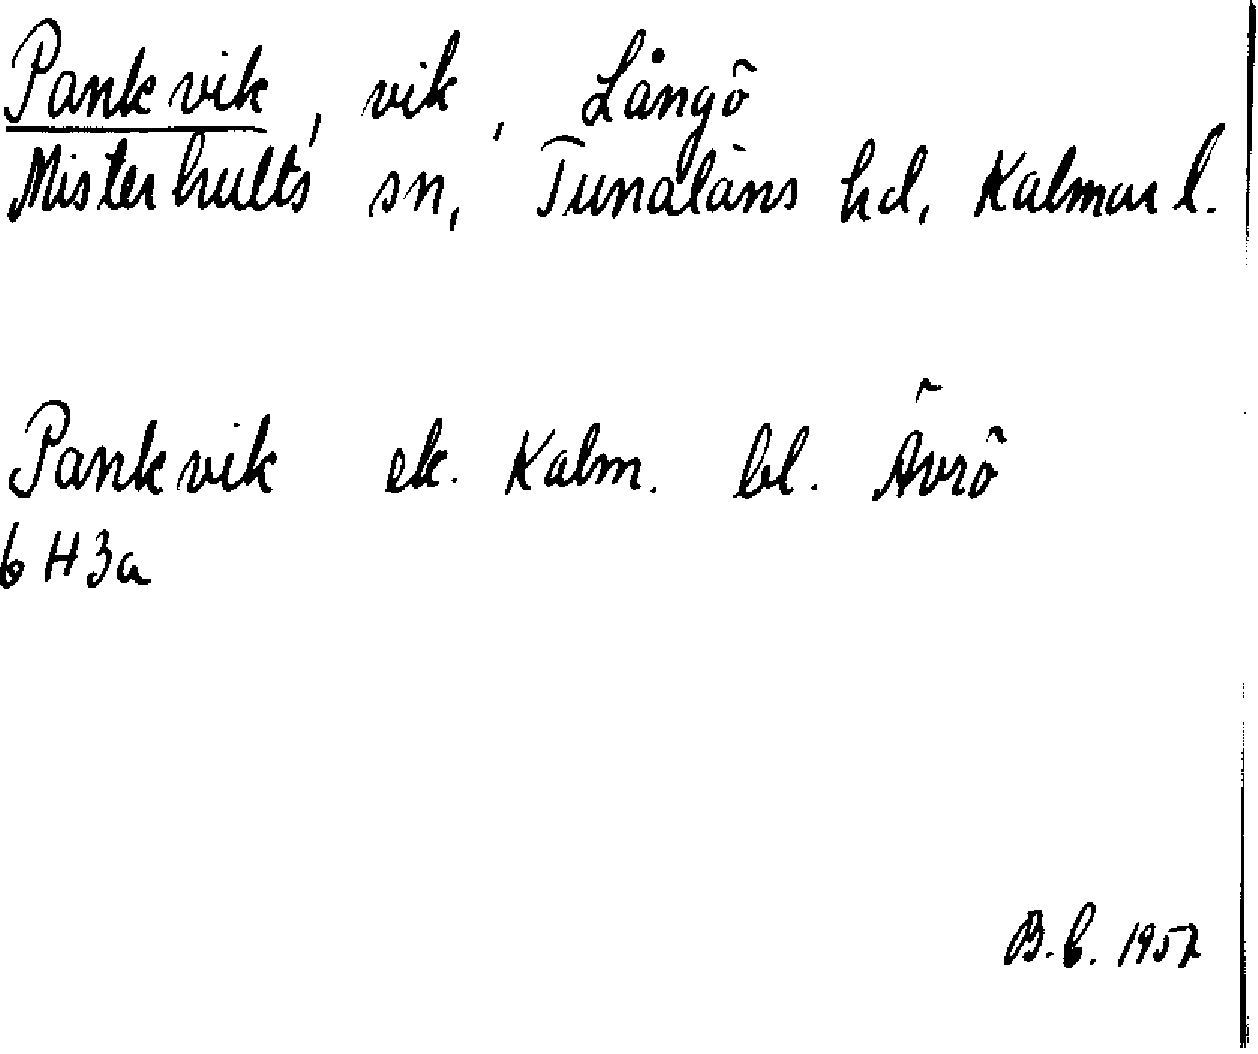 Pankvik, vik, Långö
Misterhults sn, Tunaläns hd, Kalmar l.
Pankvik ek. Kalm. bl. Ävrö
6 H 3a
B.C. 1957